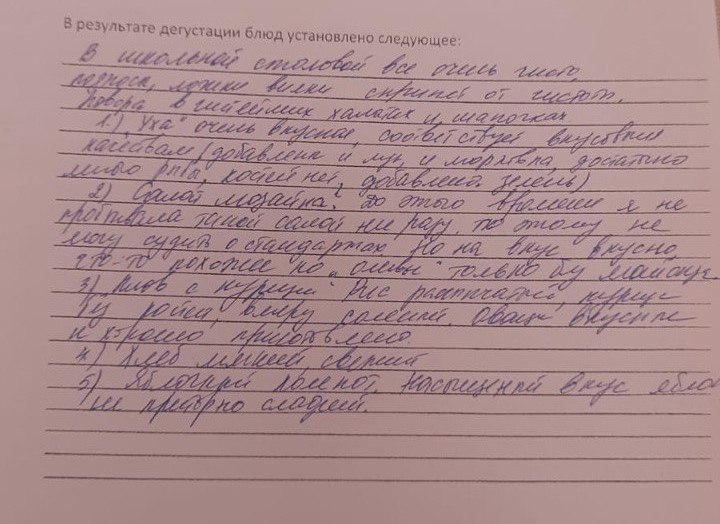 В результате дегустации блюд установлено следующее:
В школьной столовой все очень чисто,
подносы, ложки вилки скрипят от чистоты.
Повара в чистейших халатах и шапочках
1) „Уха“ очень вкусная, соответствует вкусовым
качествам (добавлена и лук, и морковка, достаточно
много рыбы, костей нет, добавлена зелень)
2) Салат мозайка". До этого времени я не
пробывала такой салат ни разу, по этому не
могу судить о стандартах Но на вкус вкусно,
что-то похожее на „оливье" только без
3) Плов с курицей" Рис рассыпчатый, курица
в меру соленый. Овощи вкусные
и хорошо приготовлено.
4) Хлеб мягкий свежий
5) Яблочный компот. Насыщенный вкус яблок
не приторно сладкий.